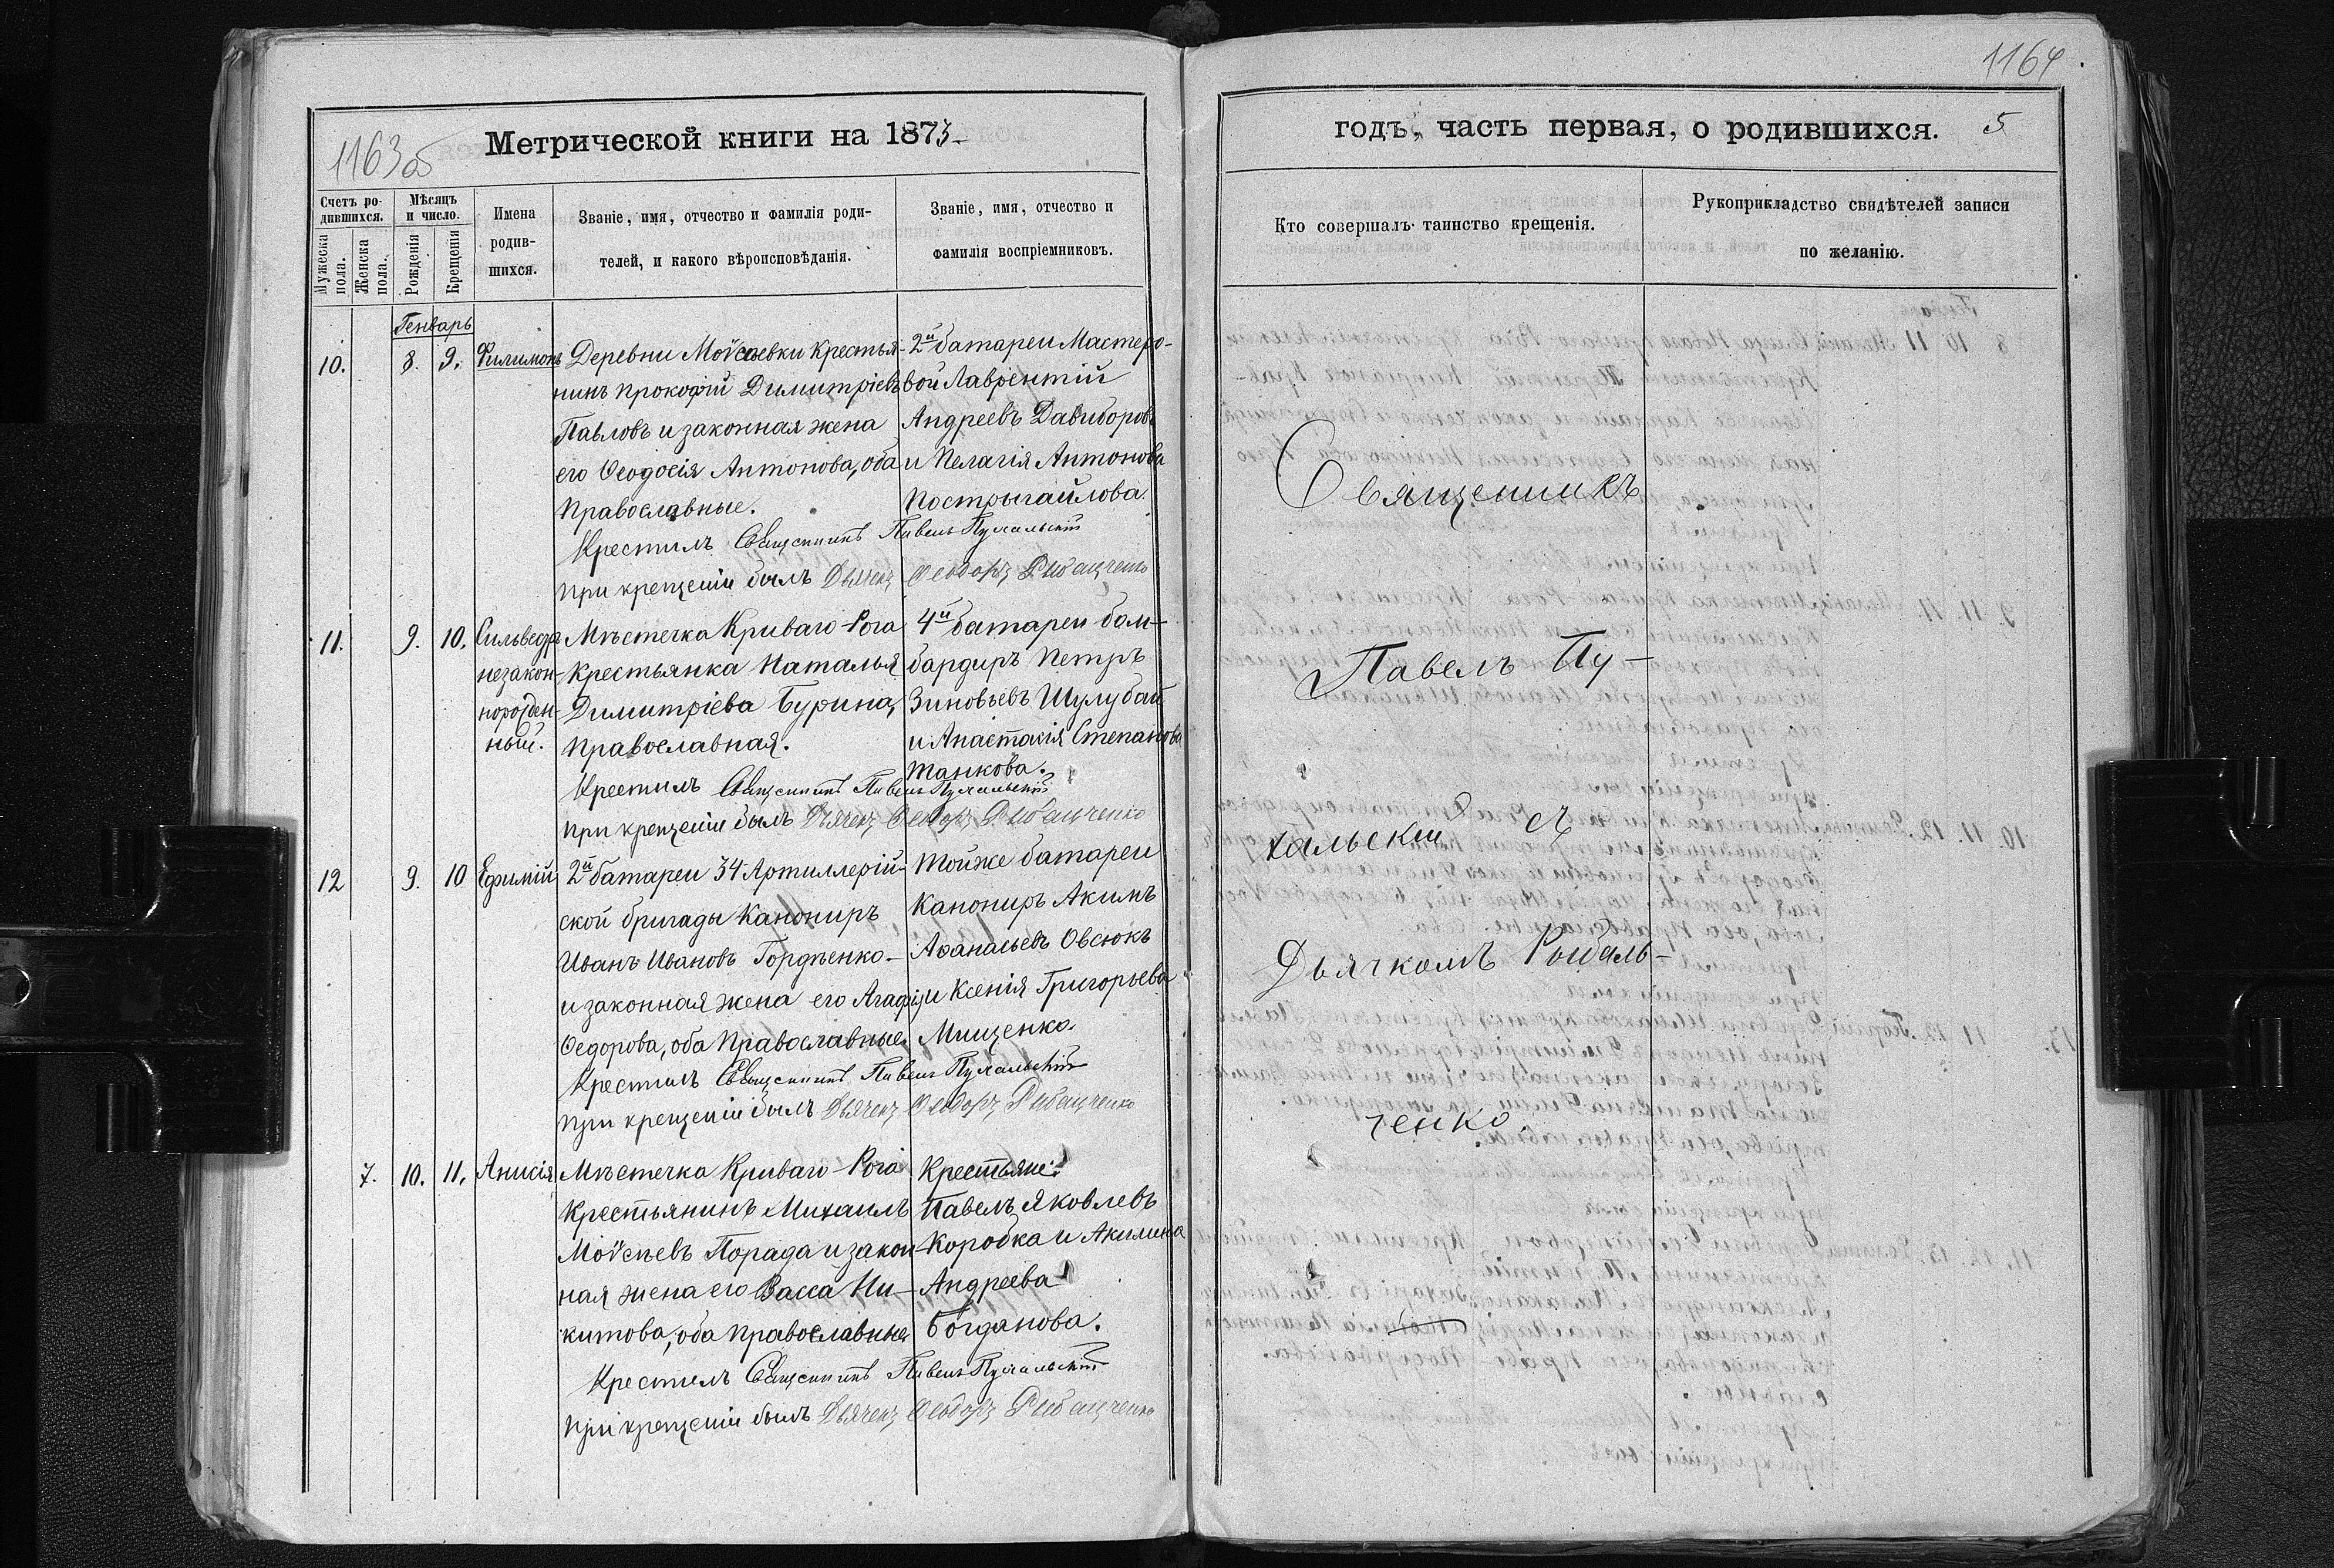 1163 об
Метрической книги на 1873
Счетъ ро-
дившихся.
Мужеска
пола.
Женска
пола.
Мѣсяцъ
и число.
Рожденія
Крещенія
Имена
родив-
шихся.
Званіе, имя, отчество и фамилія роди-
телей, и какого вѣроисповѣданія.
Званіе, имя, отчество и
фамилія воспріемниковъ.
Генварь
10. 8. 9. Филимонъ
Деревни Моѵсеевки Крестья-
нинъ Прокофій Димитріевъ
Павловъ и законная жена
его Ѳеодосія Антонова, оба
Православные.
2й батареи Мастеро-
вой Лаврентій
Андреевъ
и Пелагія Антонова
Пострыгайлова.
Крестилъ Священникъ Павелъ Пухальскій
При крещеніи былъ Дьячекъ Ѳеодоръ Рибальченко
11. 9. 10. Сильвестръ
незакон-
норожден-
ный.
Мѣстечка Криваго-Рога
Крестьянка Наталья
Димитріева Бурина,
Православная.
4й батареи бом-
бардиръ Петръ
Зиновьевъ Шулубай
и Анастасія Степанова
Танкова.
Крестилъ Священникъ Павелъ Пухальскій
При крещеніи былъ Дьячекъ Ѳеодоръ Рибальченко
12 9. 10 Ефимій
2й батареи 34 Артиллерій-
ской бригады Канониръ
Иванъ Ивановъ Гордѣенко-
и законная жена его Агафія
Ѳедорова, оба Православные
Тойже батареи
Канониръ Акимъ
Аѳанасьевъ Овсюкъ
и Ксенія Григорьева
Мищенко.
Крестилъ Священникъ Павелъ Пухальскій
При крещеніи былъ Дьячекъ Ѳеодоръ Рибальченко
7. 10. 11. Анисія
Мѣстечка Криваго-Рога
Крестьянинъ Михаилъ
Моѵсѣевъ Порада и закон-
ная жена его Васса Ни-
китова, оба православныя
Крестьяне:
Павелъ Яковлевъ
Коробка и Акилина
Андреева
Богданова.
Крестилъ Священникъ Павелъ Пухальскій
При крещеніи былъ Дьячекъ Ѳеодоръ Рибальченко
1164
годъ, часть первая, о родившихся. 5
Кто совершалъ таинство крещенія.
Рукоприкладство свидѣтелей записи
по желанію.
Священникъ
Павелъ Пу-
хальскій съ
Дьячкомъ Рыбаль-
ченко.